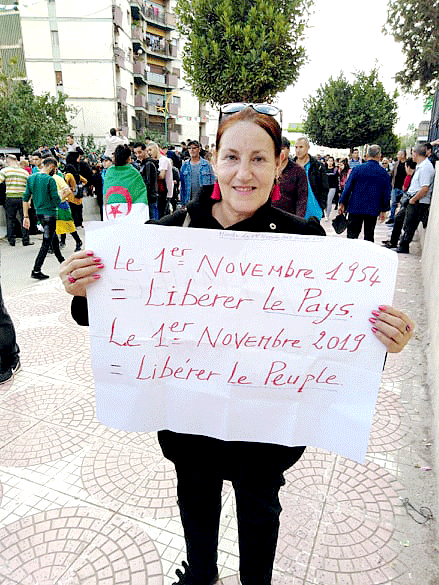 Le 1er Novembre 1954
= Libérer Le Pays.
Le 1er Novembre 2019
= Libérer Le Peuple.